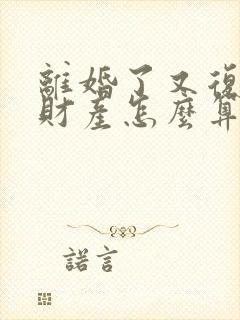 離婚了又復
財產怎麼算
諾言